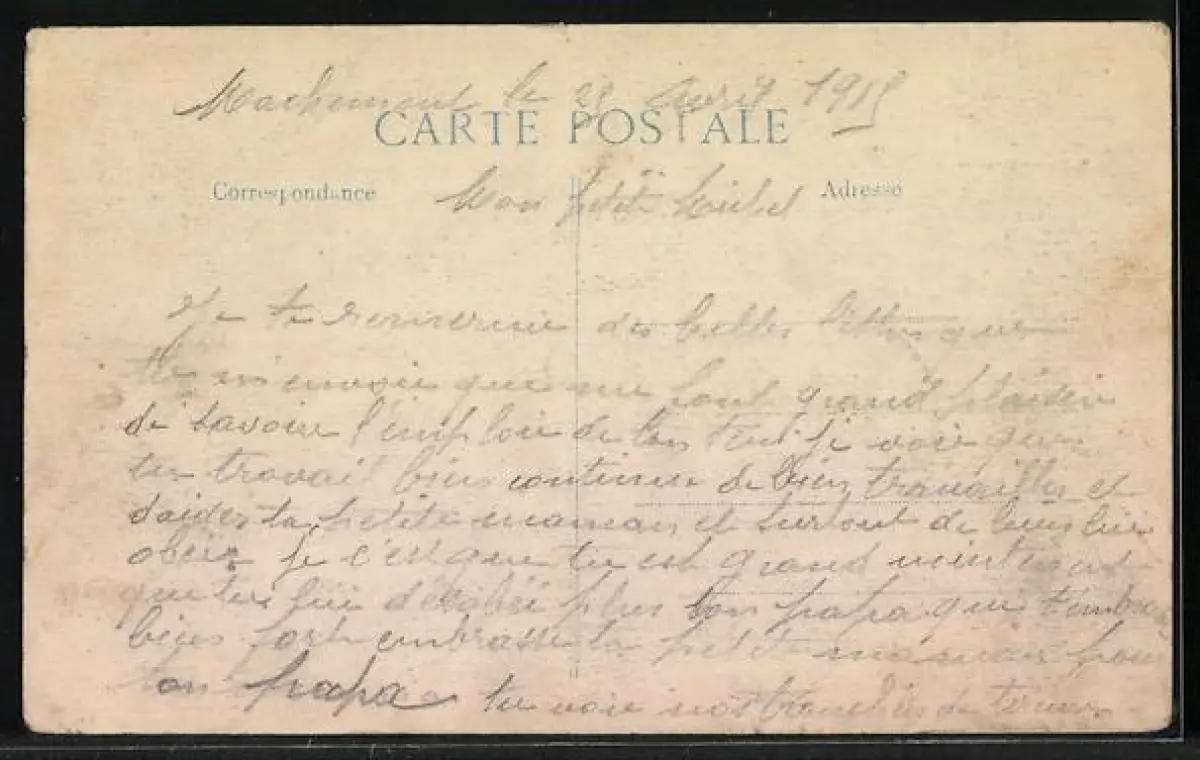 Machemont le 28 Avril 1915
CARTE POSTALE
Correspondance
Adresse
Mon petit Michel
Je te remercie des belles lettres que
tu m'envoie que me font grand plaisir
de savoir l'emploie de ton je voie que
tu travail bien continue de bien travailler et
d'aider ta petite maman et surtout de bien lui
obéir je c'est que tu est grand maintenant
que tu lui plus ton papa qui t'embrasse
bien fort embrasse ta petite maman pour
ton papa tu voie nos tranchés de